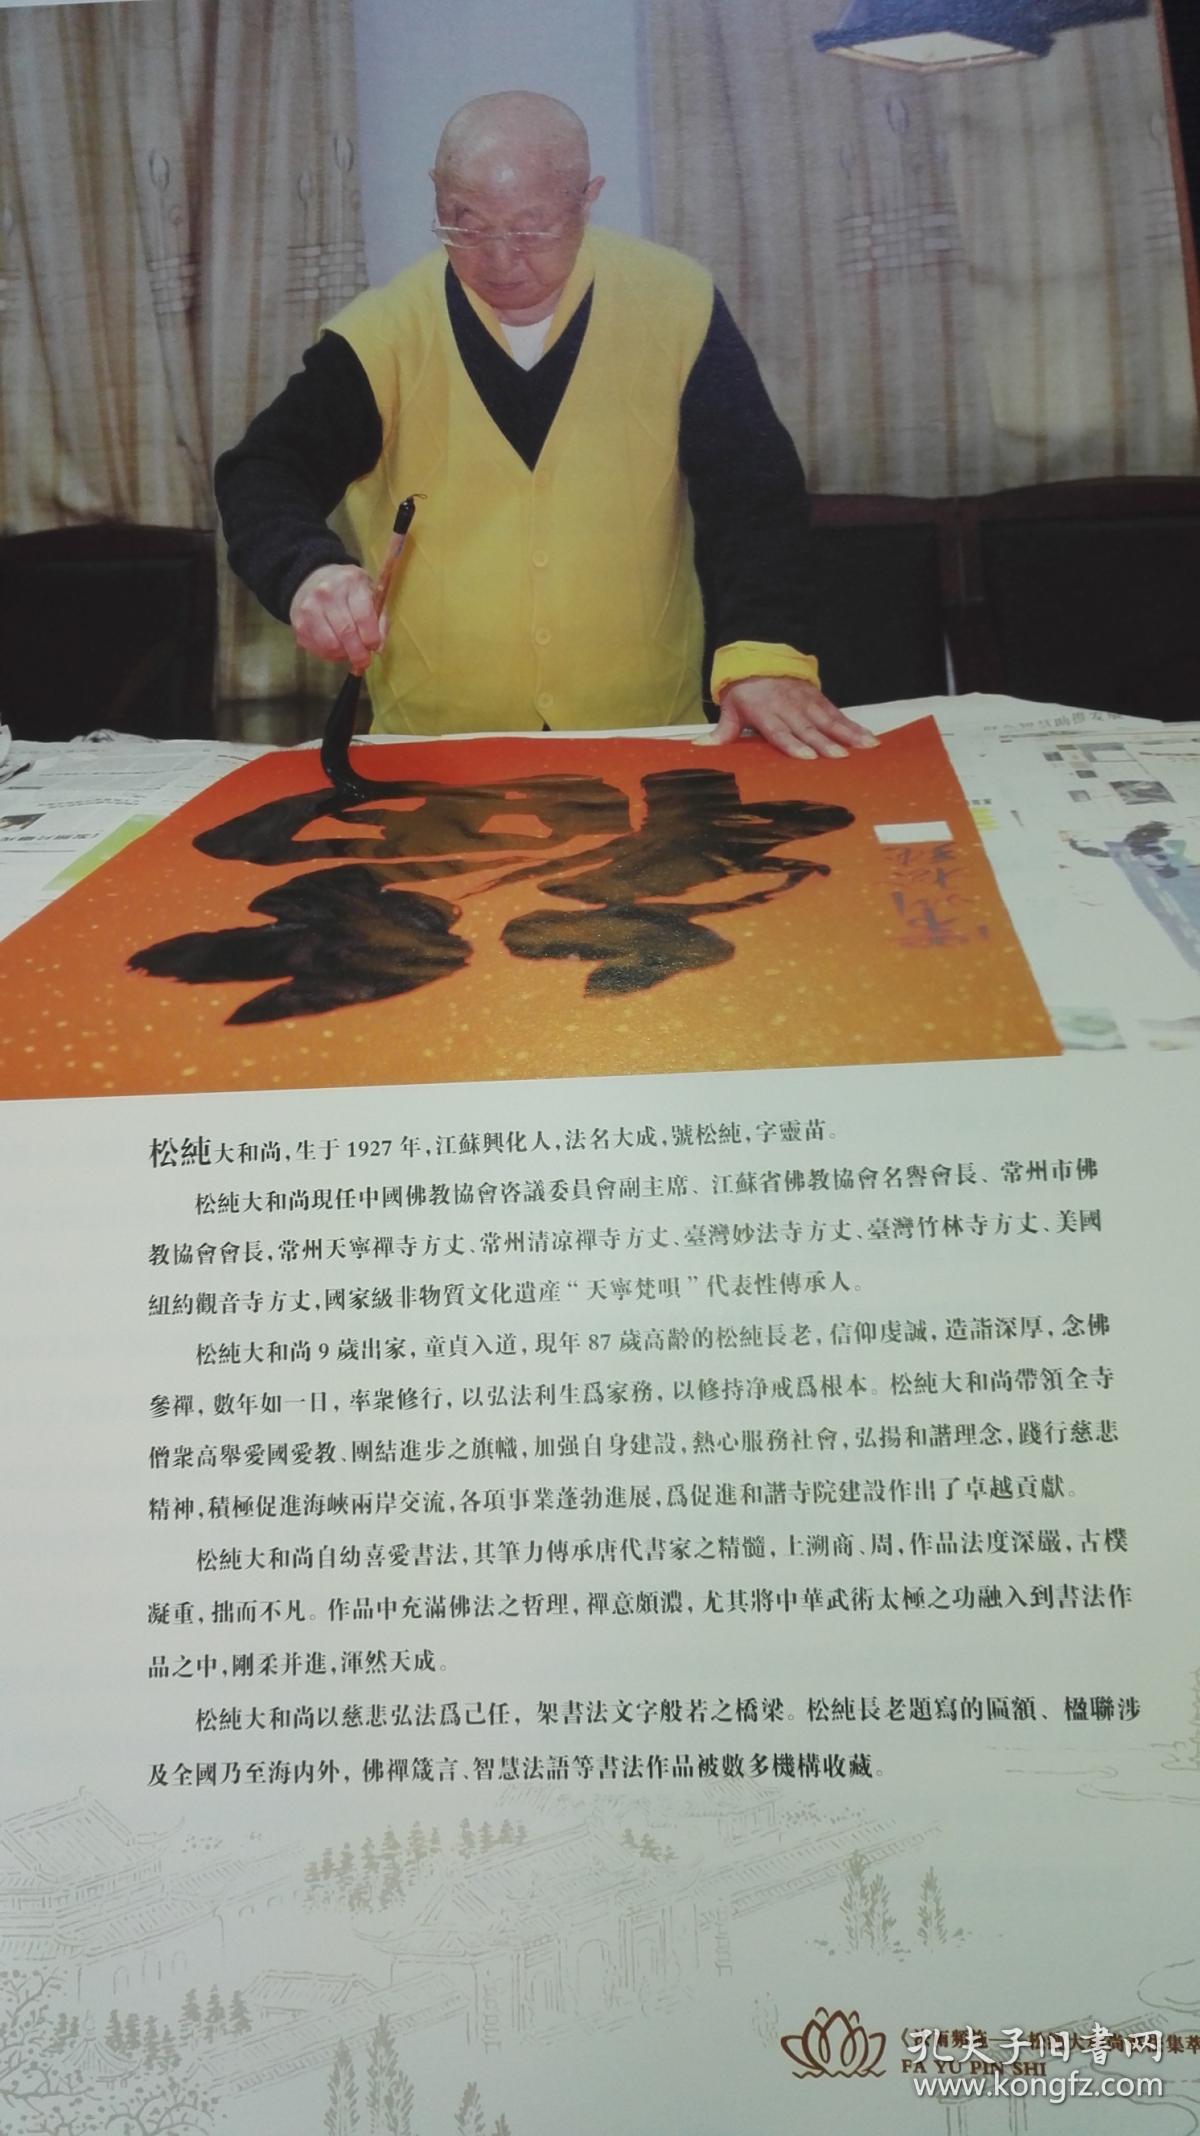 松純大和尚，生于1927年，江蘇興化人，法名大成，號松純，字靈苗。
松純大和尚現任中國佛教協會咨議委員會副主席、江蘇省佛教協會名譽會長、常州市佛
教協會會長，常州天寧禪寺方丈、常州清凉禪寺方丈、臺灣妙法寺方丈、臺灣竹林寺方丈、美國
紐約觀音寺方丈，國家級非物質文化遺産“天寧梵唄”代表性傳承人。
松純大和尚9歲出家，童貞入道，現年87歲高齡的松純長老，信仰虔誠，造詣深厚，念佛
參禪，數年如一日，率衆修行，以弘法利生爲家務，以修持净戒爲根本。松純大和尚帶領全寺
僧衆高舉愛國愛教、團結進步之旗幟，加强自身建設，熱心服務社會，弘揚和諧理念，踐行慈悲
精神，積極促進海峽兩岸交流，各項事業蓬勃進展，爲促進和諧寺院建設作出了卓越貢獻。
松純大和尚自幼喜愛書法，其筆力傳承唐代書家之精髓，上溯商、周，作品法度深嚴，古樸
凝重，拙而不凡。作品中充滿佛法之哲理，禪意頗濃，尤其將中華武術太極之功融入到書法作
品之中，剛柔并進，渾然天成。
松純大和尚以慈悲弘法爲己任，架書法文字般若之橋梁。松純長老題寫的匾額、楹聯涉
及全國乃至海内外，佛禪箴言、智慧法語等書法作品被數多機構收藏。
FA YU PIN SHI
孔夫子旧書网
www.kongfz.com